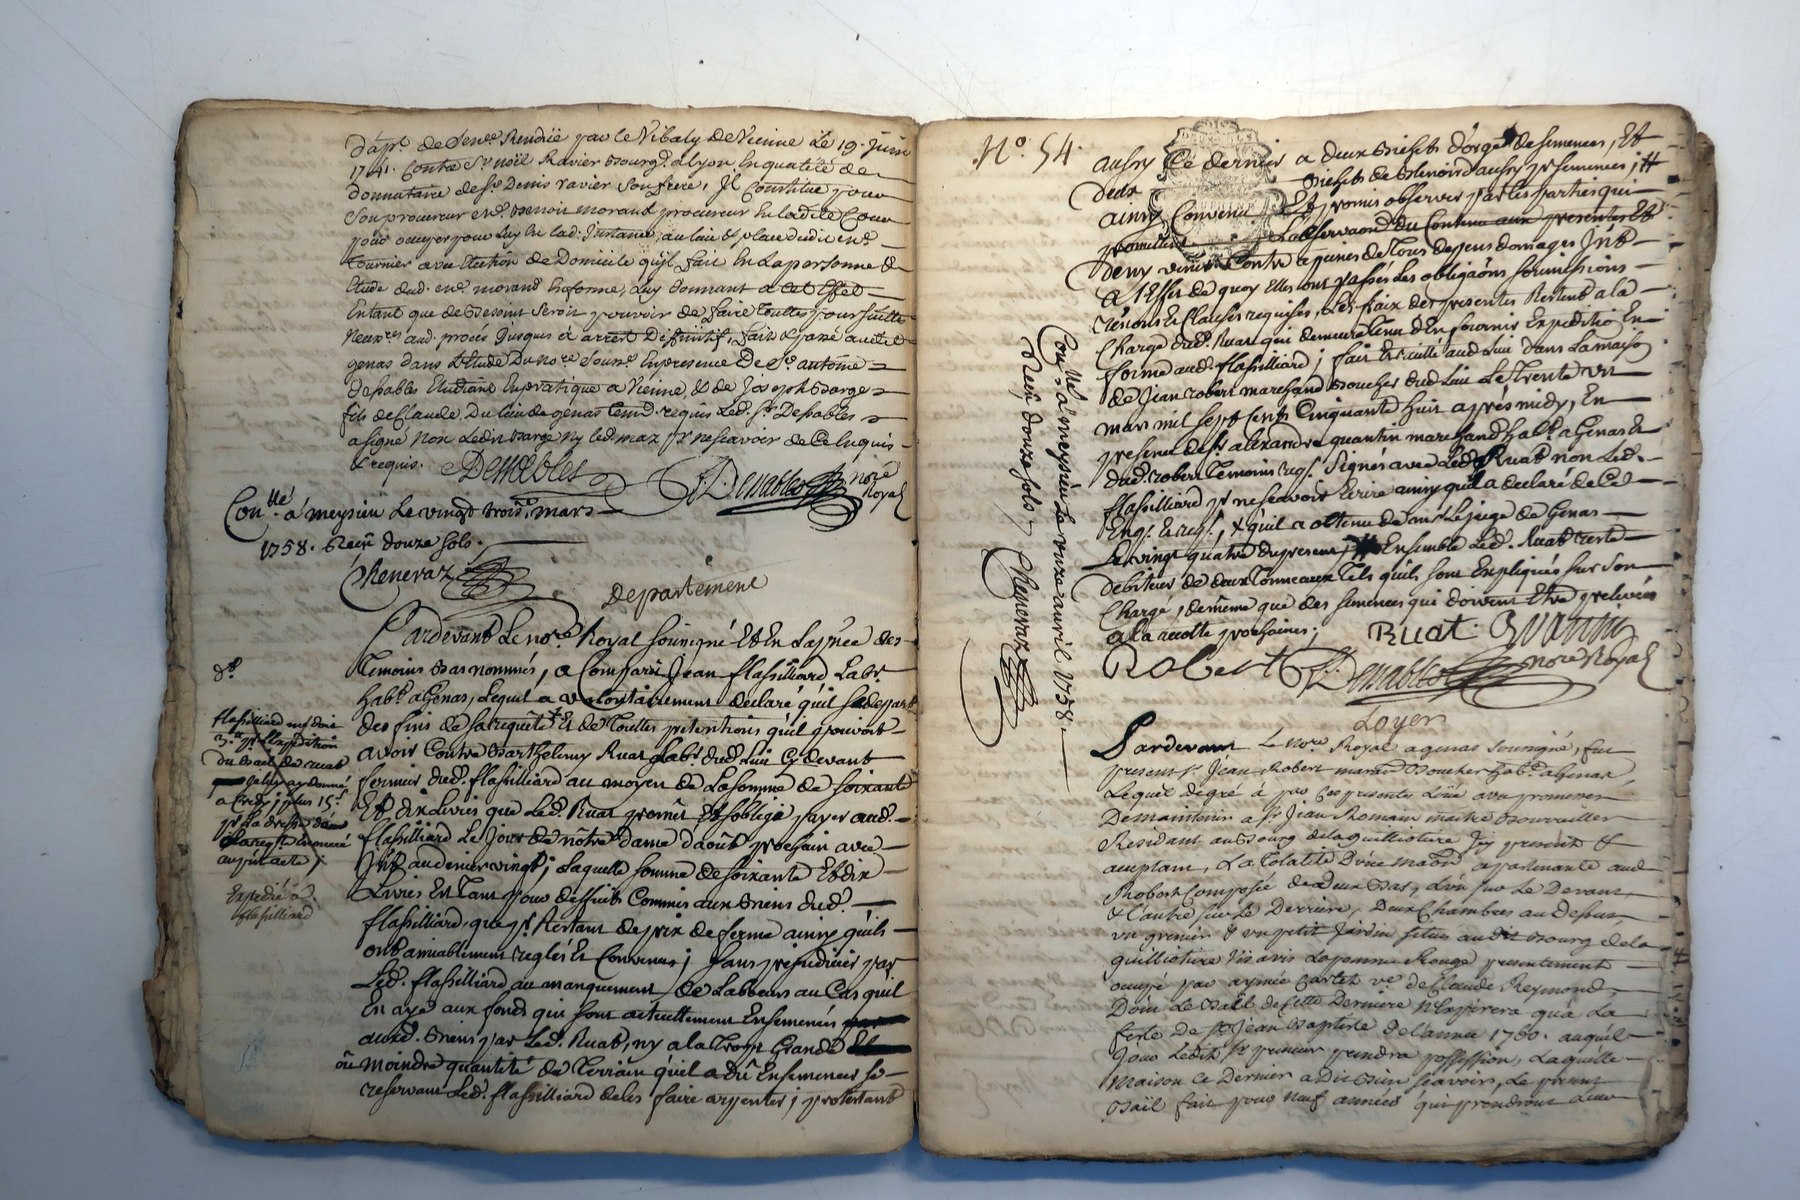 d'apt. de Sence. Rendüe par le Vibaly de Vienne le 19. Juin
1741. Contre Sr. noël Ravier Bourgs. a Lyon En qualité de
donnataire de Sr. Denis ravier Son frere, Il Constitue pour
Son procureur Me. Benoit morand procureur En ladite Cour
pour occuper pour luy En lad. Instance, au lieu & place dudit Me.
tournier avec Election de Domicile qu'il fait En la personne &
Etude dud. Me. morand En forme, Luy donnant a cet Effet
Entant que de Besoint Seroit pouvoir de faire touttes poursuittes
necesres. aud. procés Jusques à arrest Diffinitif, fait & passé audit
genas dans L'Etude Du nore. Sousné. En presence De Sr. antoine
desables Etudiant En pratique a Vienne, & de Joseph Barge
fils de Claude, Du lieu de genas temd. requis Led. Sr. Desables
a signé non Ledit Barge ny led. maz pr. ne scavoir de Ce Enquis
& requis. Desables Desables nore Royal
Conllé. á meysieu Le vingt trois. mars
1758. Reçu douze sols.
Cheneraz
Departement
Pardevant Le nore. Royal soussigné Et En La psnce des
temoins Bas nommés, a Comparu Jean flassilliard Labr.
habt. a Genas, Lequel a volontairement declaré qu'il se depart
des fins de sa requête Et de touttes pretentions qu'il pouvoit
avoir Contre Barthelemy Ruat Labr. dud. Lieu Cy devant
fermier dud. flassilliard au moyen de La somme de soixante
Et dix Livres que Led. Ruat promet & s'oblige payer aud.
flassilliard Le Jour de nôtre dame d'août prochain avec
Intt. au denier vingt; Laquelle somme de soixante Et dix
Livres En tant pour deffaits Commis aux Biens dud.
flassilliard, que pr. Restant de prix de ferme ainsy qu'ils
ont amiablement reglés Et Convenus; Sans prejudicier par
Led. flassilliard au manquement de Labeurs au Cas qu'il
En aye aux fonds qui sont actuellement Ensemencés
auxd. Biens par Led. Ruat, ny a la trop Grande
où moindre quantité de terrain qu'il a dû Ensemencer se
reservant Led. flassilliard de les faire arpenter, protestant
flassilliard me doit
3.tt pr. l'expedition
du Bail de ruat
a Credit; plus 15s.
au psnt acte;
Expedié a
flassilliard
No. 54.
aussy Ce dernier a deux Bichets d'orge de semences, Et
deux Bichets de Blé noir d'aussy pr. semences; #
ainsy Convenu Et promis observer par Les parties qui
promettent L'observaon. du Contenu aux presentes Et
d'en y venir Contre a peines de tous depens domages Intt.
a L'Effet de quoy Elles ont passées Les obligaons. soumissions
rénons. Et Clauses requises, Les fraix des presentes Restent a la
Charge dud. Ruat qui demeure tenu d'En fournir Expeditio En
forme aud. flassilliard; fait Et recitté aud. Lieu dans La maiso
de Jean robert marchand Boucher dud. Lieu Le trente un
mars mil sept sents Cinquante huit après midy, En
presence de Sr. alexandre quantin marchand habt. a Genas &
dud. robert temoins reqs. Signés avec Led. Ruat non Led.
flassilliard pr. ne scavoir Ecrire ainsy qu'il a declaré de Ce
Enqs. & reqs., & qu'il a obtenu de mr. Le juge de Genas
Le vingt quatre du present; # Ensemble Led. Ruat reste
debiteur de deux tonneaux tels qu'ils sont Expliqués sur Son
Charge, de même que des semences qui doivent Etre prelevées
a La recolte prochaine; Ruat. Quantin
Robert Desables nore Royal
Conllé. a meysieu Le onze avril 1758.
Reçu douze sols Cheneraz
Loyer
Pardevant Le nore. Royal a genas soussigné, fut
present Sr. Jean Robert marcd. Boucher habt. a Genas,
Lequel de gré à par Ces presentes Loüe avec promesse
De maintenir a Sr. Jean Romain maitre
Residant au Bourg de la guillotiere Icy present &
acceptant, La totalité D'une maison appartenante aud.
Robert Composée de Deux Bas, L'un sur Le Devant,
& L'autre sur Le Derriere, Deux Chambres au Dessus
un grenier & un petit Jardin situés au dit Bourg de la
guilliotiere Vis avis La pomme Rouge presentement
occupé par aymée Cartet ve. de Claude Reymond,
Dont Le Bail de Cette Derniere n'Expirera qu'à La
feste de St. Jean Baptiste de L'année 1760. auquel
Jour Ledit Sr. preneur prendra possession, Laquelle
Maison Ce Dernier a Dit Bien scavoir, Le present
Bail fait pour Neuf années qui prendront Leur